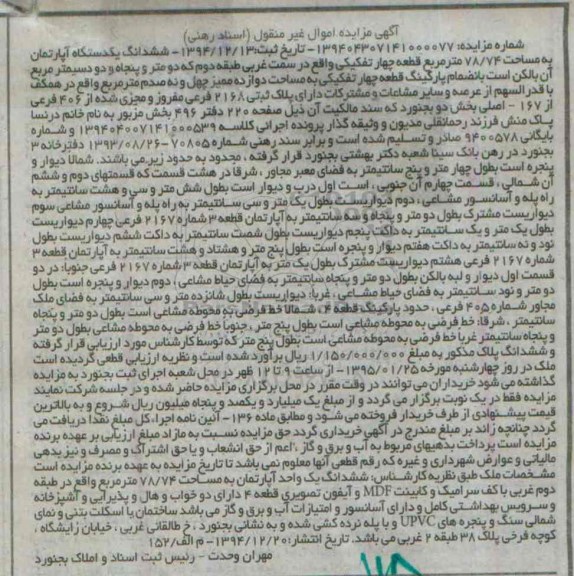 آگهی مزایده اموال غیر منقول (اسناد رهنی)
شماره مزایده: ۱۳۹۴۰۴۳۰۷۱۴۱۰۰۰۰۷۷- تاریخ ثبت: ۱۳۹۴/۱۲/۱۳- ششدانگ یکدستگاه آپارتمان
به مساحت ۷۸/۷۴ مترمربع قطعه چهار تفکیکی واقع در سمت غربی طبقه دوم که دو متر و پنجاه و دو دسیمتر مربع
آن بالکن است بانضمام پارکینگ قطعه چهار تفکیکی به مساحت دوازده ممیز چهل و نه صدم مترمربع واقع در همکف
با قدرالسهم از عرصه و سایر مشاعات و مشترکات دارای پلاک ثبتی ۲۱۶۸ فرعی مفروز و مجزی شده از ۴۰۶ فرعی
از ۱۶۷ - اصلی بخش دو بجنورد که سند مالکیت آن ذیل صفحه ۲۲۰ دفتر ۴۹۶ بخش مزبور به نام خانم درنسا
پاک منش فرزند رحمانقلی مدیون و وثیقه گذار پرونده اجرائی کلاسه ۱۳۹۴۰۴۰۰۷۱۴۱۰۰۰۵۳۹ و شماره
بایگانی ۹۴۰۰۵۷۸ صادر و تسلیم شده است و برابر سند رهنی شماره ۷۰۸۰۵-۱۳۹۳/۰۸/۲۶ دفترخانه ۳
بجنورد در رهن بانک سینا شعبه دکتر بهشتی بجنورد قرار گرفته ، محدود به حدود زیر می باشند. شمالا دیوار و
پنجره است بطول چهار متر و پنج سانتیمتر به فضای معبر مجاور ، شرقا در هشت قسمت که قسمتهای دوم و ششم
آن شمالی ، قسمت چهارم آن جنوبی ، است اول درب و دیوار است بطول شش متر و سی و هشت سانتیمتر به
راه پله و آسانسور مشاعی ، دوم دیواریست بطول یک متر و سی سانتیمتر به راه پله و آسانسور مشاعی سوم
دیواریست مشترک بطول دو متر و پنجاه و سه سانتیمتر به آپارتمان قطعه ۳ شماره ۲۱۶۷ فرعی چهارم دیواریست
بطول یک متر و یک سانتیمتر به داکت پنجم دیواریست بطول شصت سانتیمتر به داکت ششم دیواریست بطول
نود و نه سانتیمتر به داکت هفتم دیوار و پنجره است بطول پنج متر و هشتاد و هشت سانتیمتر به آپارتمان قطعه ۳
شماره ۲۱۶۷ فرعی هشتم دیواریست مشترک بطول یک متر به آپارتمان قطعه ۳ شماره ۲۱۶۷ فرعی جنوبا: در دو
قسمت اول دیوار و لبه بالکن بطول دو متر و پنجاه سانتیمتر به فضای حیاط مشاعی ، دوم دیوار و پنجره است بطول
دو متر و نود سانتیمتر به فضای حیاط مشاعی ، غربا: دیواریست بطول شانزده متر و سی سانتیمتر به فضای ملک
مجاور شماره ۴۰۵ فرعی ، حدود پارکینگ قطعه ۴ ، شمالا خط فرضی به محوطه مشاعی است بطول دو متر و پنجاه
سانتیمتر ، شرقا: خط فرضی به محوطه مشاعی است بطول پنج متر ، جنوبا خط فرضی به محوطه مشاعی بطول دو متر
و پنجاه سانتیمتر غربا خط فرضی به محوطه مشاعی است بطول پنج متر که توسط کارشناس مورد ارزیابی قرار گرفته
و ششدانگ پلاک مذکور به مبلغ ۱/۱۵۰/۰۰۰/۰۰۰ ریال برآورد شده است و نظریه ارزیابی قطعی گردیده است
ملک در روز چهارشنبه مورخه ۱۳۹۵/۰۱/۲۵- از ساعت ۹ تا ۱۲ ظهر در محل شعبه اجرای ثبت بجنورد به مزایده
گذاشته می شود خریداران می توانند در وقت مقرر در محل برگزاری مزایده حاضر شده و در جلسه شرکت نمایند
مزایده فقط در یک نوبت برگزار می گردد و از مبلغ یک میلیارد و یکصد و پنجاه میلیون ریال شروع و به بالاترین
قیمت پیشنهادی از طرف خریدار فروخته می شود و مطابق ماده ۱۳۶- آئین نامه اجرا، کل مبلغ نقدا دریافت می
گردد چنانچه زائد بر مبلغ مندرج در آگهی خریداری گردد حق مزایده نسبت به مازاد مبلغ ارزیابی بر عهده برنده
مزایده است پرداخت بدهیهای مربوط به آب و برق و گاز ، اعم از حق انشعاب و یا حق اشتراک و مصرف و نیز بدهی
مالیاتی و عوارض شهرداری و غیره که رقم قطعی آنها معلوم نمی باشد تا تاریخ مزایده به عهده برنده مزایده است
مشخصات ملک طبق نظریه کارشناس: ششدانگ یک واحد آپارتمان به مساحت ۷۸/۷۴ مترمربع واقع در طبقه
دوم غربی با کف سرامیک و کابینت MDF و آیفون تصویری قطعه ۴ دارای دو خواب و هال و پذیرایی و آشپزخانه
و سرویس بهداشتی کامل و دارای آسانسور و امتیازات آب و برق و گاز می باشد ساختمان با اسکلت بتنی و نمای
شمالی سنگ و پنجره های UPVC و با پله نرده کشی شده و به نشانی بجنورد ، خ طالقانی غربی ، خیابان زایشگاه ،
کوچه فرخی پلاک ۳۸ طبقه ۲ غربی می باشد. تاریخ انتشار: ۱۳۹۴/۱۲/۲۰- م الف/۱۵۲
مهران وحدت - رئیس ثبت اسناد و املاک بجنورد